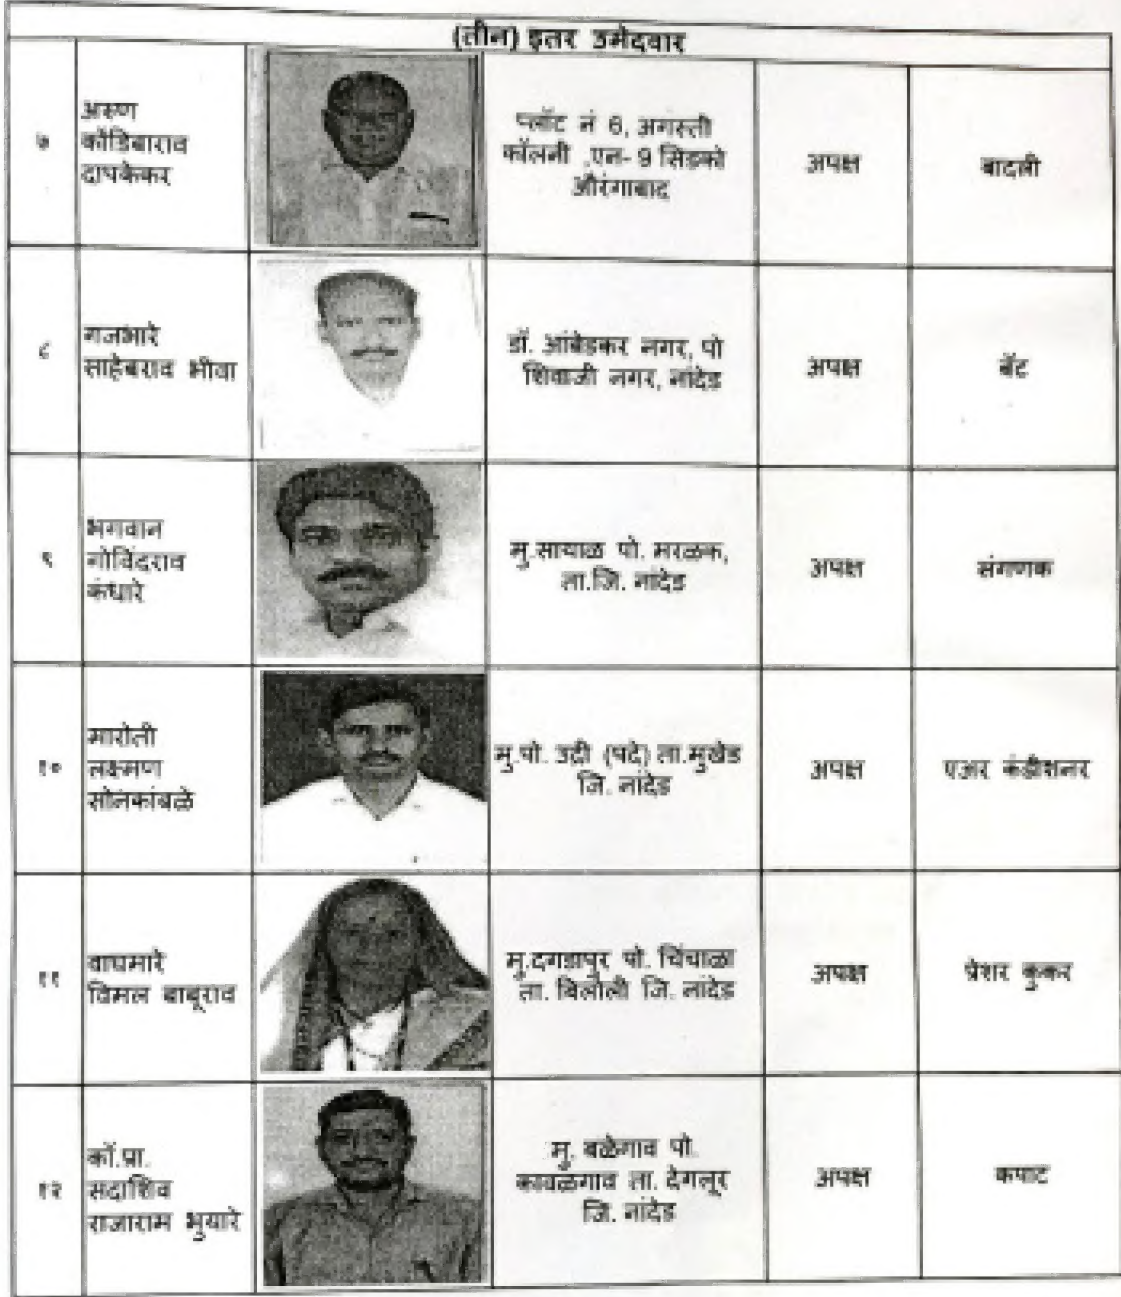 (तीन) इतर उमेदवार
७
अरुण
कोंडिबाराव
दापकेकर
प्लॉट नं 6, अगस्ती
कॉलनी ,एन- 9 सिडको
औरंगाबाद
अपक्ष
बादली
८
गजभारे
साहेबराव भीवा
डॉ. आंबेडकर नगर, पो
शिवाजी नगर, नांदेड
अपक्ष
बॅट
९
भगवान
गोविंदराव
कंधारे
मु.सायाळ पो. मरळक,
ता.जि. नांदेड
अपक्ष
संगणक
१०
मारोती
लक्ष्मण
सोनकांबळे
मु.पो. उंद्री (पदे) ता.मुखेड
जि. नांदेड
अपक्ष
एअर कंडीशनर
११
वाघमारे
विमल बाबूराव
मु.दगडापुर पो. चिंचाळा
ता. बिलोली जि. नांदेड
अपक्ष
प्रेशर कुकर
१२
कॉ.प्रा.
सदाशिव
राजाराम भुयारे
मु. बळेगाव पो.
कावळगाव ता. देगलूर
जि. नांदेड
अपक्ष
कपाट